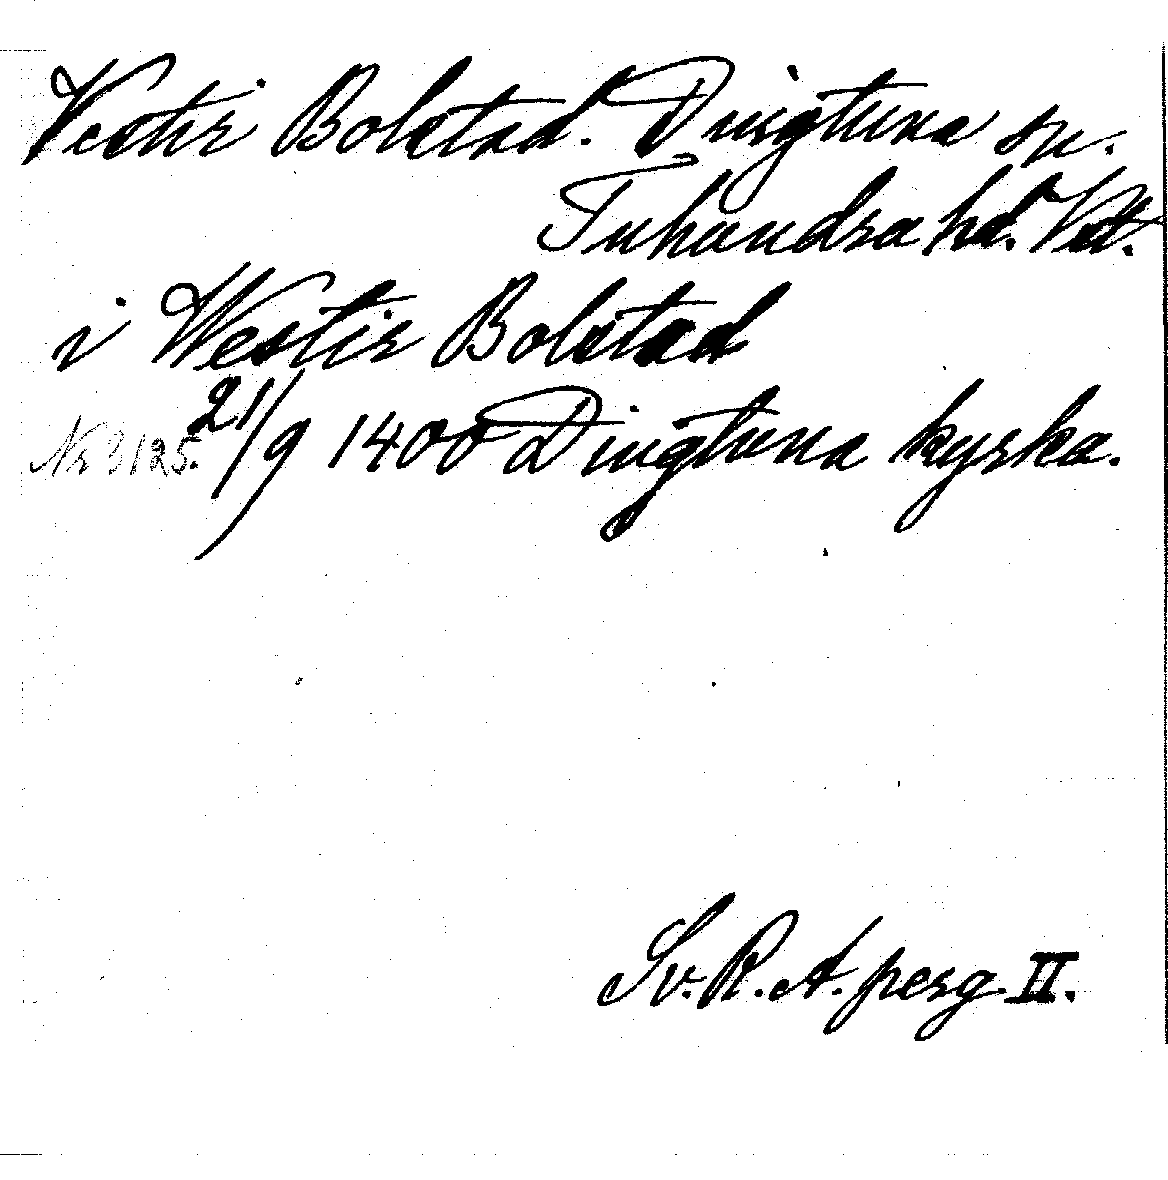 Vestir Bolstad. Dingtuna sn.
Tuhundra hd. Vstl.
i Westir Bolstad
Nr 3125. 21/9 1400 Dingtuna kyrka.
Sv. R. A. perg. II.